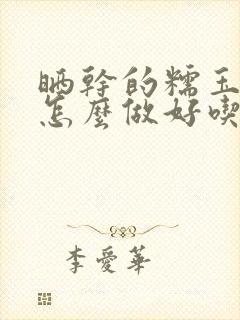 晒幹的糯玉
怎麼做好喫
李愛華